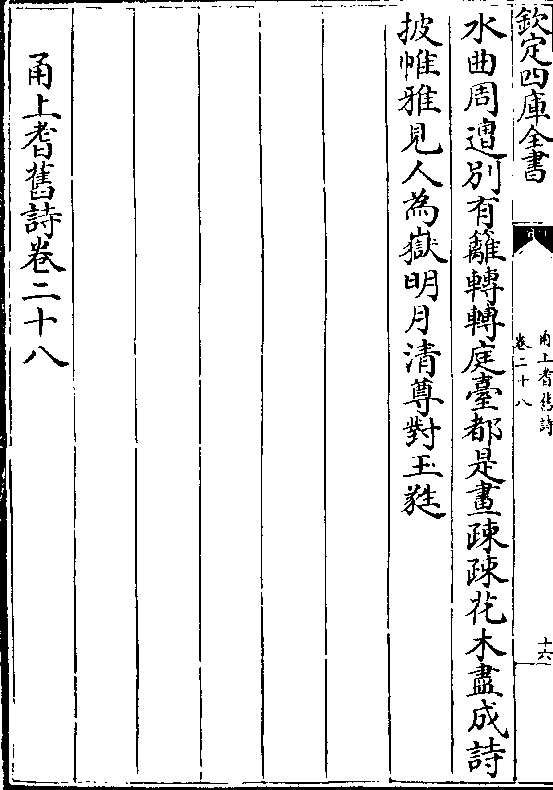 欽定四庫全書
甬上耆舊詩
卷二十八
十六
水曲周遭別有籬轉轉庭臺都是畫疎疎花木盡成詩
披帷雅見人為嶽明月清尊對玉㽔
甬上耆舊詩卷二十八